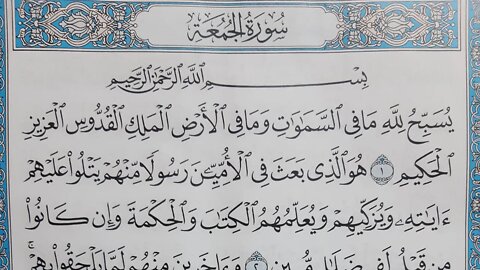 سُورَةُ الجُمُعَةِ
بِسْمِ ٱللَّهِ ٱلرَّحْمَٰنِ ٱلرَّحِيمِ
يُسَبِّحُ لِلَّهِ مَا فِى ٱلسَّمَٰوَٰتِ وَمَا فِى ٱلْأَرْضِ ٱلْمَلِكِ ٱلْقُدُّوسِ ٱلْعَزِيزِ
ٱلْحَكِيمِ ١ هُوَ ٱلَّذِى بَعَثَ فِى ٱلْأُمِّيِّـۧنَ رَسُولًا مِّنْهُمْ يَتْلُوا۟ عَلَيْهِمْ
ءَايَٰتِهِۦ وَيُزَكِّيهِمْ وَيُعَلِّمُهُمُ ٱلْكِتَٰبَ وَٱلْحِكْمَةَ وَإِن كَانُوا۟
مِن قَبْلُ لَفِى ضَلَٰلٍ مُّبِينٍ ٢ وَءَاخَرِينَ مِنْهُمْ لَمَّا يَلْحَقُوا۟ بِهِمْ ۚ